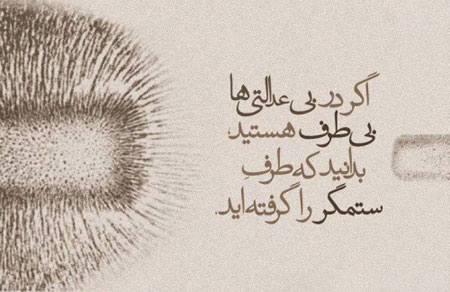 اگر در بی‌عدالتی‌ها
بی‌طرف هستید،
بدانید که طرفِ
ستمگر را گرفته‌اید.